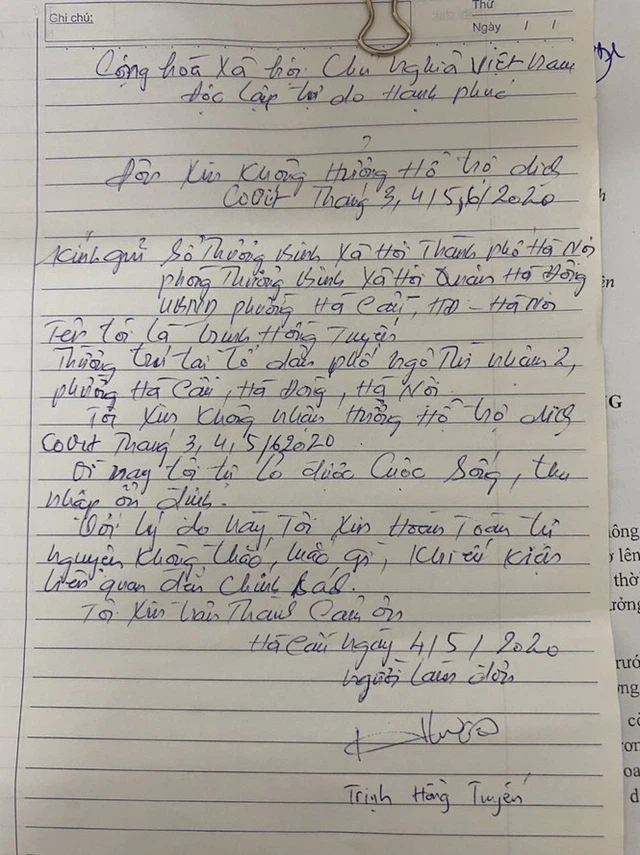 Ghi chú:
Thứ
Ngày / /
Cộng hoà Xã hội Chủ nghĩa Việt Nam
Độc lập tự do Hạnh phúc
Đơn Xin Không Hưởng Hỗ trợ dịch
CoVit Tháng 3, 4/5,6/2020
Kính gửi Sở Thương binh Xã Hội Thành phố Hà Nội
phòng Thương binh Xã Hội Quận Hà Đông
UBND phường Hà Cầu, HĐ - Hà Nội
Tên tôi là Trịnh Hồng Tuyến
Thường trú tại tổ dân phố ngô Thì nhậm 2,
phường Hà Cầu, Hà Đông, Hà Nội.
Tôi Xin Không nhận Hưởng Hỗ trợ dịch
CoVit Tháng 3, 4, 5/6 2020
Vì nay tôi tự lo được Cuộc Sống, thu
nhập ổn định.
Với lý do này, Tôi Xin Hoàn Toàn tự
nguyện Không thắc mắc gì, Khiếu Kiện
liên quan đến Chính Sách.
Tôi Xin Chân Thành Cảm ơn
Hà Cầu ngày 4/5/2020
người làm đơn
Trịnh Hồng Tuyến